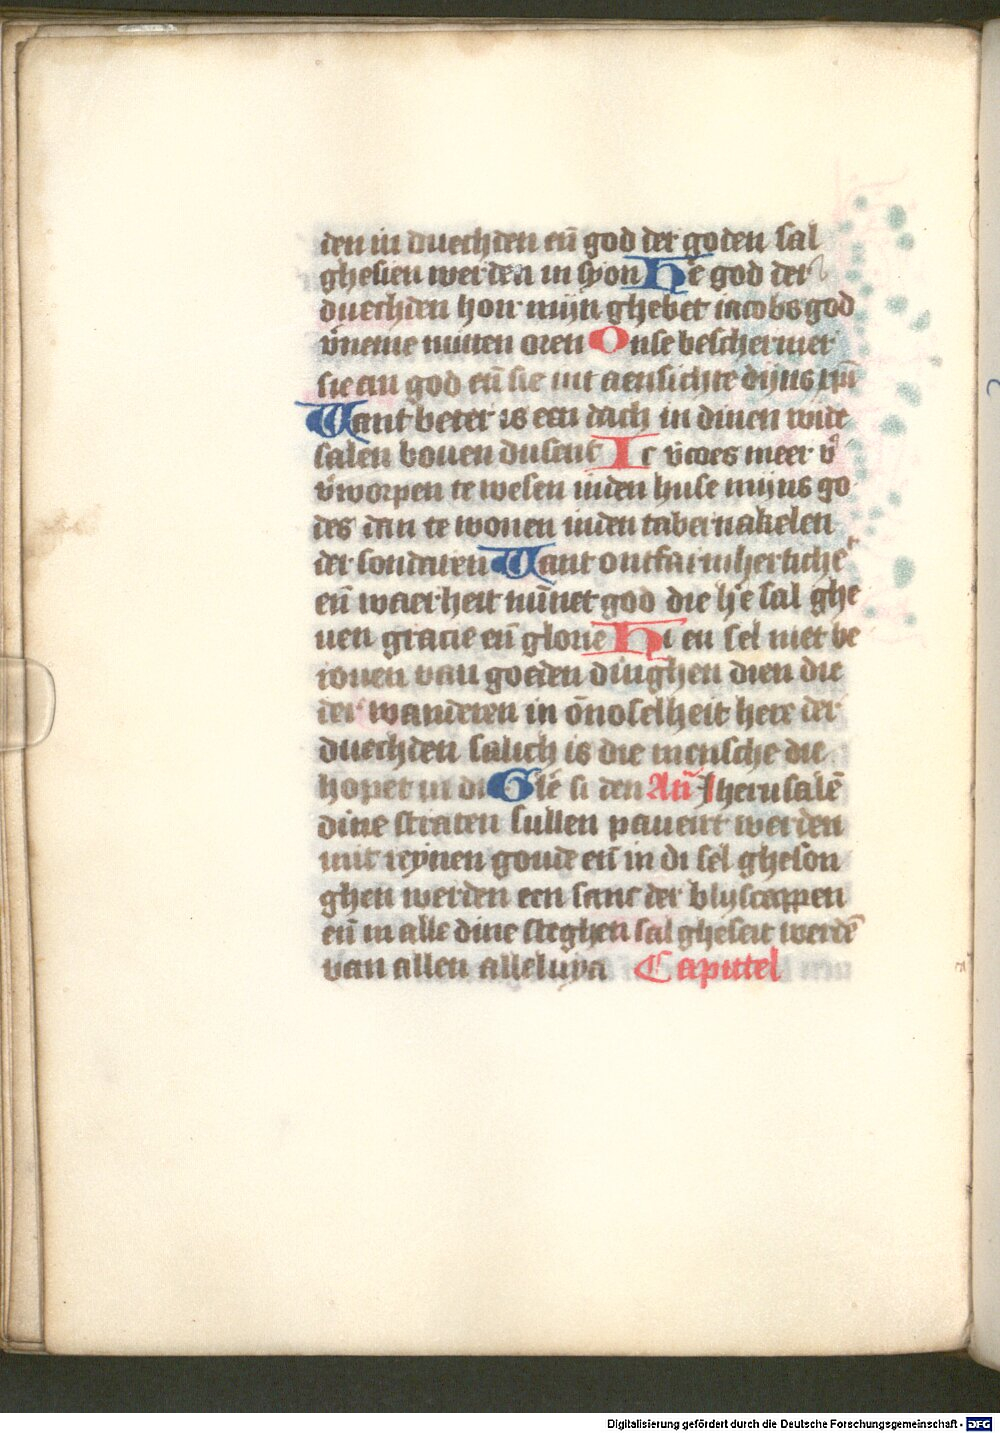 den in duechden eñ god der goden sal
ghesien werden in syon he god der
duechden hoir mijn ghebet iacobs god
v̄neme mitten oren Onse beschermer
sie an god eñ sie int aensichte dijns xp̄i
Want beter is een dach in dinen wide
salen bouen dusent Ic v̄coes meer v̄
v̄worpen te wesen inden huse mijns go
des dan te wonen inden tabernakelen
der sondaren Want ontfarmhertiche
eñ waerheit mīnet god die he sal ghe
uen gracie eñ glorie Hi en sel niet be
rouen van goeden dinghen dien die
der wanderen in ōnoselheit here der
duechden salich is die mensche die
hopet in di Glē si den Añ Jherusalē
dine straten sullen pauert werden
mit reynen goude eñ in di sel gheson
ghen werden een sanc der blyscappen
eñ in alle dine steghen sal gheseit werdē
van allen alleluya Capittel
Digitalisierung gefördert durch die Deutsche Forschungsgemeinschaft - DFG